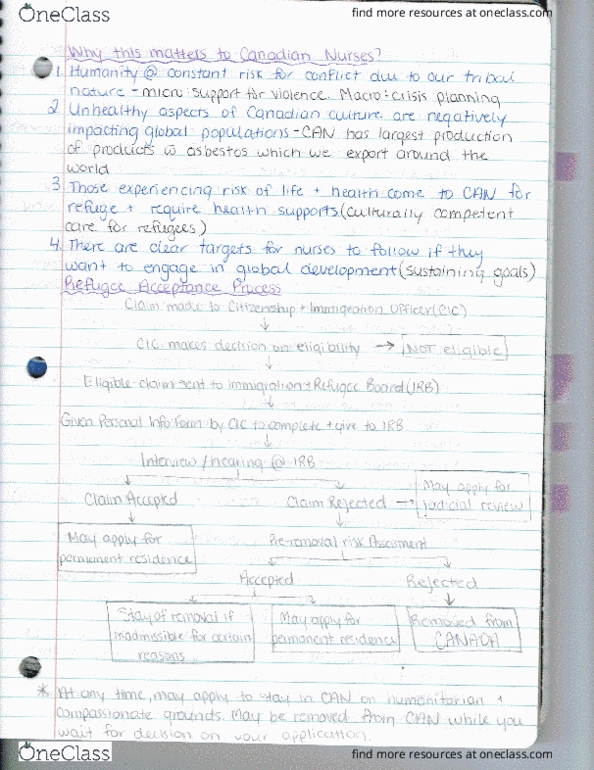 OneClass
find more resources at oneclass.com
Why this matters to Canadian Nurses?
1. Humanity @ constant risk for conflict due to our tribal
nature - micro: support for violence. Macro: crisis planning
2. Unhealthy aspects of Canadian culture are negatively
impacting global populations - CAN has largest production
of products w̄ asbestos which we export around the
world
3. Those experiencing risk of life + health come to CAN for
refuge + require health supports (culturally competent
care for refugees)
4. There are clear targets for nurses to follow if they
want to engage in global development (sustaining goals)
Refugee Acceptance Process
Claim made to Citizenship + Immigration Officer (CIC)
CIC makes decision on eligibility → NOT eligible
Eligible claim sent to immigration + Refugee Board (IRB)
Given Personal Info Form by CIC to complete + give to IRB
Interview / hearing @ IRB
Claim Accepted
Claim Rejected →
May apply for
judicial review
May apply for
permanent residence
Pre-removal risk Assessment
Accepted
Rejected
Stay of removal if
inadmissible for certain
reasons
May apply for
permanent residence
Removed from
CANADA
* At any time, may apply to stay in CAN on humanitarian +
compassionate grounds. May be removed from CAN while you
wait for decision on your application.
OneClass
find more resources at oneclass.com